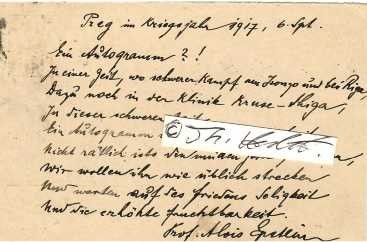 Prag im Kriegsjahr 1917, 6. Spt.
Ein Autogramm?!
In einer Zeit, wo schwerer Kampf am Isonzo und bei Riga,
Dazu noch in der Klinik Kruse-Shiga,
In dieser schweren
Ein Autogramm
©
Nicht rätlich ists den
Wir wollen ihn wie üblich strecken
Und warten auf des Friedens Seligkeit
Und die erhöhte Fruchtbarkeit.
Prof. Alois Epstein